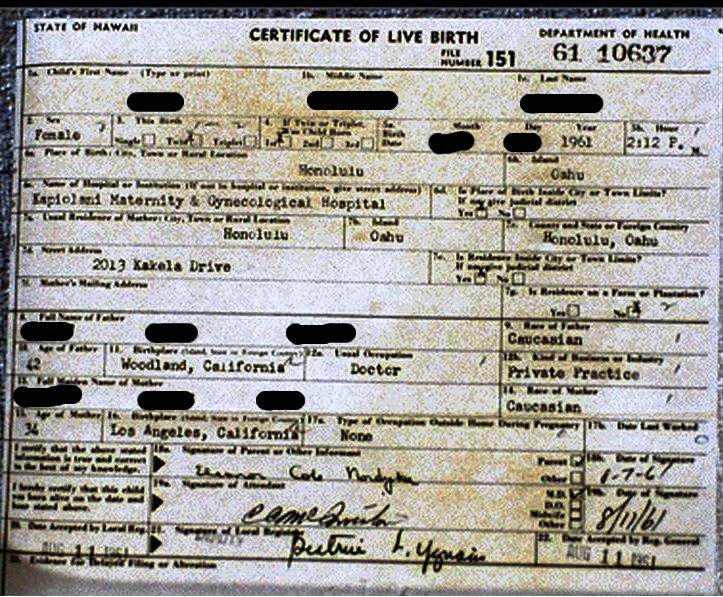 STATE OF HAWAII
CERTIFICATE OF LIVE BIRTH
DEPARTMENT OF HEALTH
FILE NUMBER 151
61 10637
1a. Child's First Name (Type or print)
1b. Middle Name
1c. Last Name
2. Sex
3. This Birth
4. If Twin or Triplet,
5a. Birth Date
Month
Day
Year
5b. Hour
Female
Single
Twin
Triplet
1st
2nd
3rd
1961
2:12 P. M.
6a. Place of Birth: City, Town or Rural Location
6b. Island
Honolulu
Oahu
6c. Name of Hospital or Institution (If not in hospital or institution, give street address)
6d. Is Place of Birth Inside City or Town Limits?
If no, give judicial district
Kapiolani Maternity & Gynecological Hospital
Yes
No
7a. Usual Residence of Mother: City, Town or Rural Location
7b. Island
7c. County and State or Foreign Country
Honolulu
Oahu
Honolulu, Oahu
7d. Street Address
7e. Is Residence Inside City or Town Limits?
If no, give judicial district
2013 Kakela Drive
Yes
No
7f. Mother's Mailing Address
7g. Is Residence on a Farm or Plantation?
Yes
No
8. Full Name of Father
9. Race of Father
Caucasian
10. Age of Father
11. Birthplace (Island, State or Foreign Country)
12a. Usual Occupation
12b. Kind of Business or Industry
42
Woodland, California
Doctor
Private Practice
13. Full Maiden Name of Mother
14. Race of Mother
Caucasian
15. Age of Mother
16. Birthplace (Island, State or Foreign Country)
17a. Type of Occupation Outside Home During Pregnancy
17b. Date Last Worked
34
Los Angeles, California
None
I certify that the above stated
of my knowledge.
18a. Signature of Parent or Other Informant
Parent
Other
18b. Date of Signature
I hereby certify that this child
was born alive on the date
stated above.
19a. Signature of Attendant
M.D.
D.O.
Midwife
Other
19b. Date of Signature
8/11/61
20. Date Accepted by Local Reg.
21. Signature of Local Registrar
22. Date Accepted by Reg. General
AUG 11 1961
AUG 11 1961
23. Evidence for Delayed Filing or Alteration